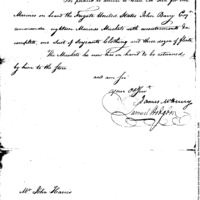 Marines on board the Frigate United States John Barry Esqr
commander eighteen Marines Muskets with accoutrements
complete, one suit of Sergeants Clothing and three dozen of flints
The Muskets he now has on hand to be returned
by him to the store
and am Sir
your Obt
James McHenry
Samuel Hodgdon
Mr John Harris